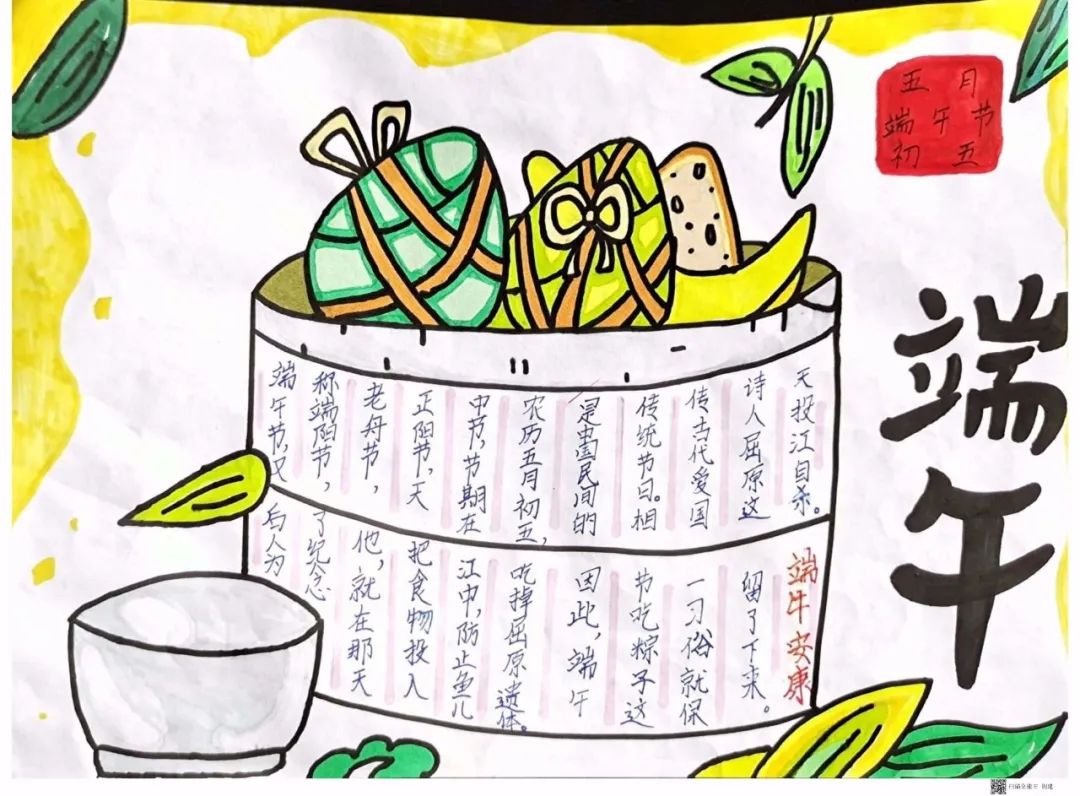 五月
端午节
初五
端午
端午节,又
称端阳节,
老舟节,
正阳节,天
中节,节期在
农历五月初五,
是中国民间的
传统节日。相
传古代爱国
诗人屈原这
天投江自杀。
后人为
了纪念
他,就在那天
把食物投入
江中,防止鱼儿
吃掉屈原遗体。
因此,端午
节吃粽子这
一习俗就保
留了下来。
端牛安康
扫描全能王 创建